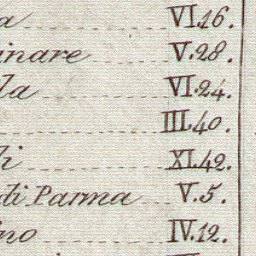 a VI.16.
inare V.28.
la VI.24.
III.40.
li XI.42.
di Parma V.5.
ino IV.12.